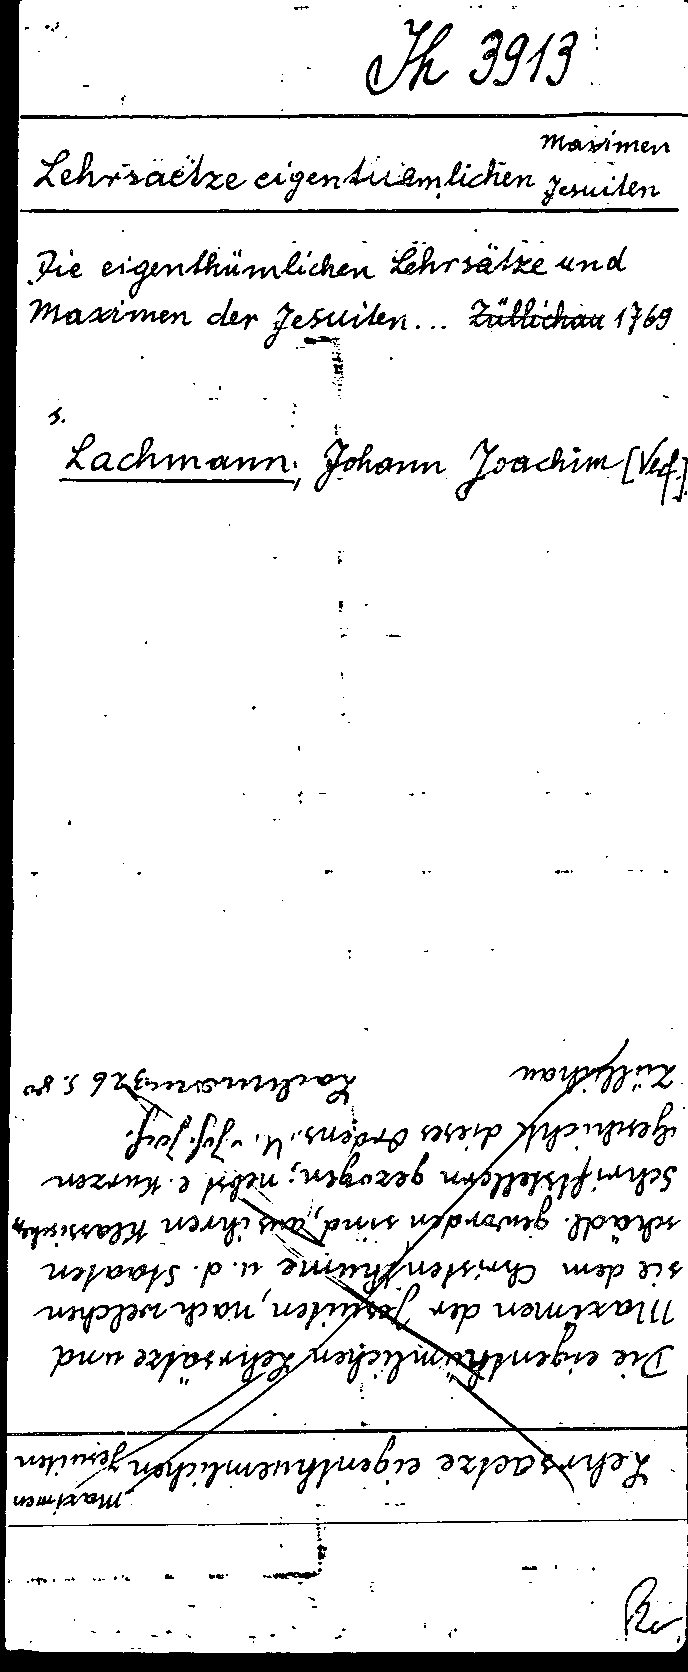 Th 3913
Maximen
Lehrsaetze eigentuemlichen Jesuiten
Die eigenthümlichen Lehrsätze und
Maximen der Jesuiten... Züllichau 1769
s.
Lachmann, Johann Joachim [Verf.]
Lehrsaetze eigenthuemlichen Jesuiten
Maximen
Die eigenthümlichen Lehrsätze und
Maximen der Jesuiten, nach welchen
sie dem Christenthume u. d. Staaten
schädl. geworden sind, aus ihren klassischen
Schriftstellern gezogen; nebst e. kurzen
Geschichte dieses Ordens.
Züllichau Lachmann 326 S. 8°